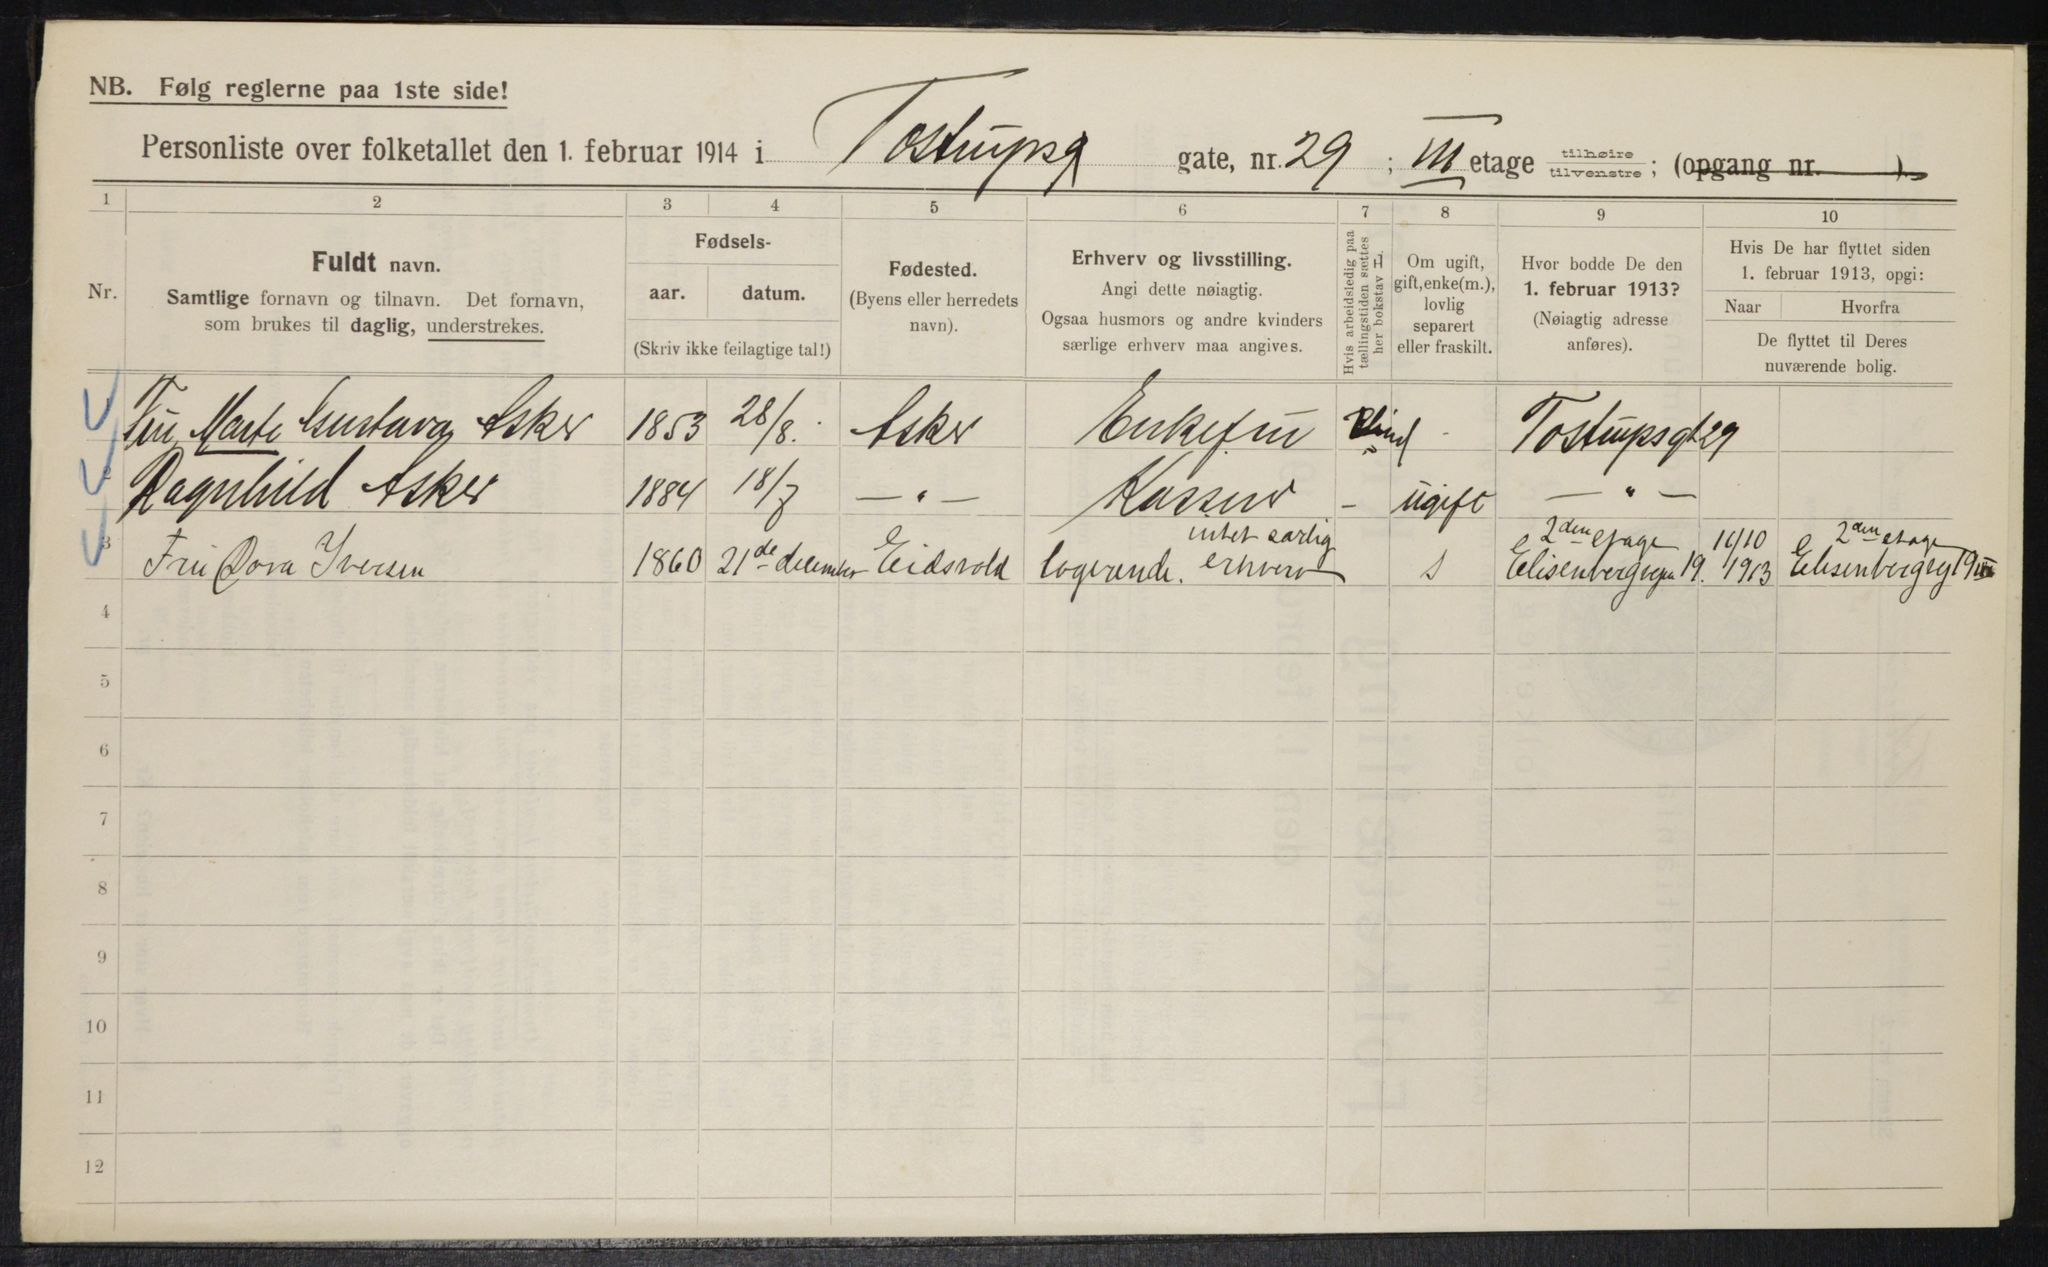 NB. Følg reglerne paa 1ste side!
Personliste over folketallet den 1. februar 1914 i Tostrupsg gate, nr. 29 ; III etage tilhøire tilvenstre ; (opgang nr. )
1 2 3 4 5 6 7 8 9 10
Nr.
Fuldt navn.
Samtlige fornavn og tilnavn. Det fornavn,
som brukes til daglig, understrekes.
Fødsels-
aar. datum.
(Skriv ikke feilagtige tal!)
Fødested.
(Byens eller herredets
navn).
Erhverv og livsstilling.
Angi dette nøiagtig.
Ogsaa husmors og andre kvinders
særlige erhverv maa angives.
Hvis arbeidsledig paa
tællingstiden sættes
her bokstav L
Om ugift,
gift, enke(m.),
lovlig
separert
eller fraskilt.
Hvor bodde De den
1. februar 1913?
(Nøiagtig adresse
anføres).
Hvis De har flyttet siden
1. februar 1913, opgi:
Naar Hvorfra
De flyttet til Deres
nuværende bolig.
1 Fru Marte Gustava Asker 1853 28/8. Asker Enkefru - Tostrupsgt 29
2 Ragnhild Asker 1884 18/7 — " — Kasserer - ugift — " —
3 Fru Dora Iversen 1860 21de december Eidsvold logerende. intet særlig erhverv s 2den etage Elisenbergvejen 19. 11/10 1913 2den etage Elisenbergvej 19 III
4
5
6
7
8
9
10
11
12